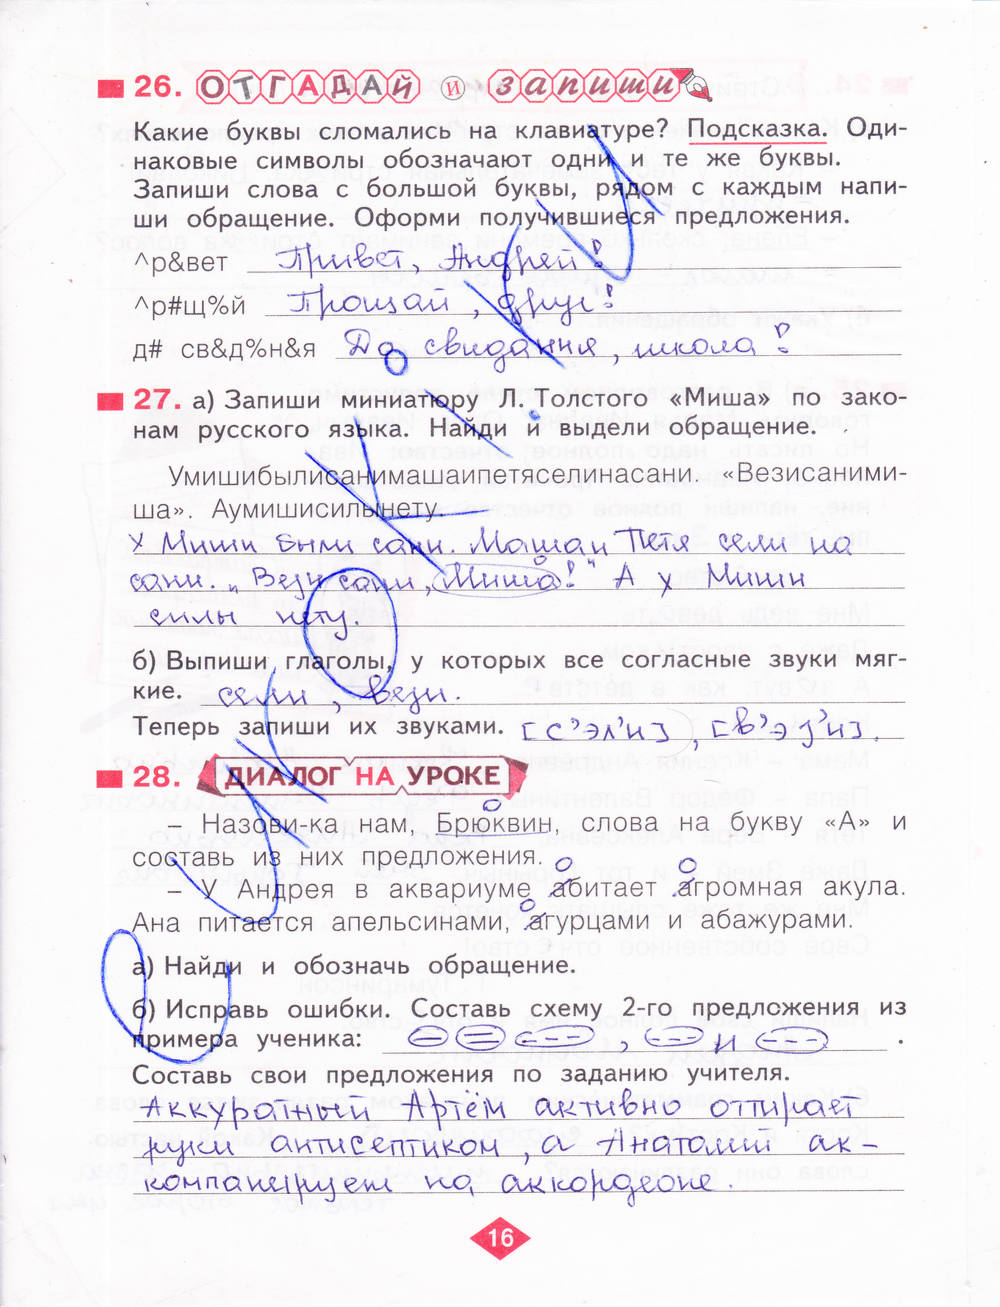 26. ОТГАДАЙ И ЗАПИШИ
Какие буквы сломались на клавиатуре? Подсказка. Оди-
наковые символы обозначают одни и те же буквы.
Запиши слова с большой буквы, рядом с каждым напи-
ши обращение. Оформи получившиеся предложения.
^р&вет Привет, Андрей!
^р#щ%й Прощай, друг!
д# св&д%н&я До свидания, школа!
27. а) Запиши миниатюру Л. Толстого «Миша» по зако-
нам русского языка. Найди и выдели обращение.
Умишибылисанимашаипетяселинасани. «Везисаними-
ша». Аумишисилынету.
У Миши были сани. Маша и Петя сели на
сани. „Вези сани, Миша!" А у Миши
силы нету.
б) Выпиши глаголы, у которых все согласные звуки мяг-
кие. сели, вези.
Теперь запиши их звуками. [с'эл'и], [в'эз'и].
28. ДИАЛОГ НА УРОКЕ
– Назови-ка нам, Брюквин, слова на букву «А» и
составь из них предложения.
– У Андрея в аквариуме абитает агромная акула.
Ана питается апельсинами, агурцами и абажурами.
а) Найди и обозначь обращение.
б) Исправь ошибки. Составь схему 2-го предложения из
примера ученика: , и .
Составь свои предложения по заданию учителя.
Аккуратный Артём активно оттирает
руки антисептиком, а Анатолий ак-
компанирует на аккордеоне.
16